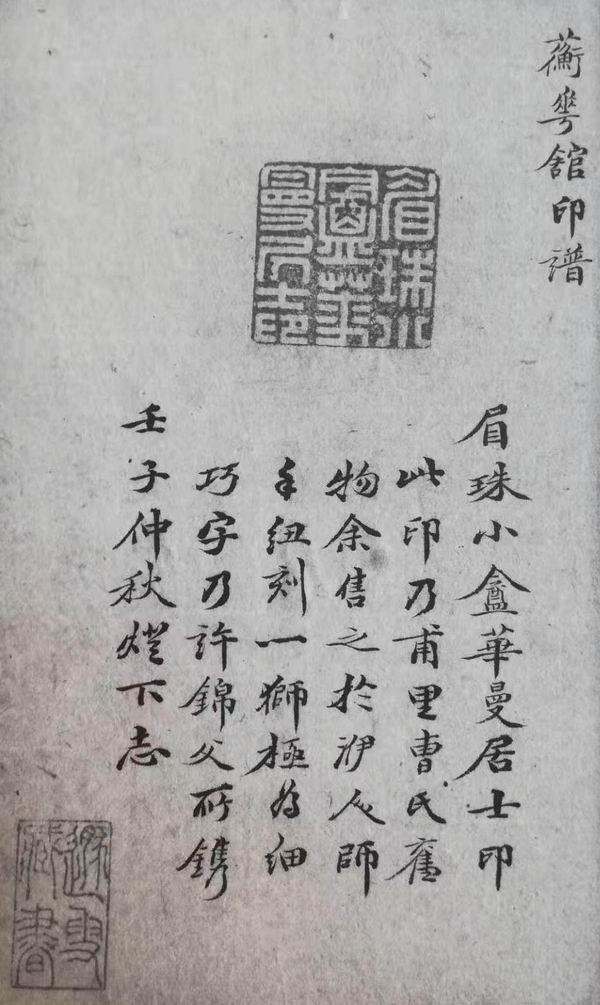 蘅華館印譜
眉珠小盦華曼居士印
眉珠小盦華曼居士印
此印乃甫里曹氏舊
物余售之於
人師
手紐刻一獅極為細
巧字乃許錦父所鐫
壬子仲秋燈下志
遯叟
藏書